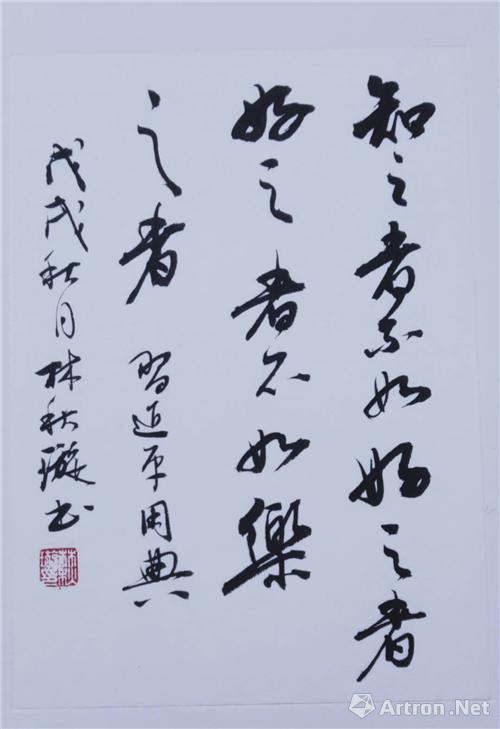 知之者不如好之者
好之者不如樂
之者 習近平用典
戊戌秋月林秋璇书
Artron.Net